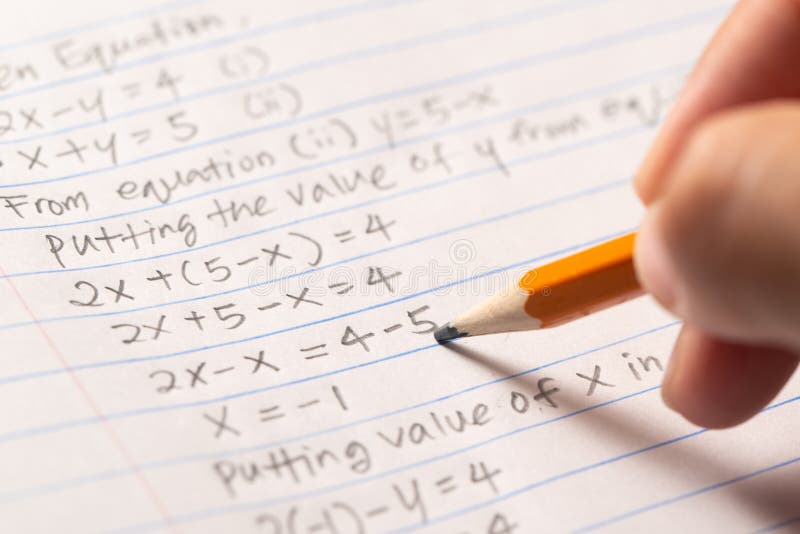 en Equation,
2x-y=4 (i)
x+y=5 (ii)
From equation (ii) y=5-x
putting the value of y from
2x+(5-x)=4
2x+5-x=4
2x-x=4-5
x=-1
putting value of x in
2(-1)-y=4